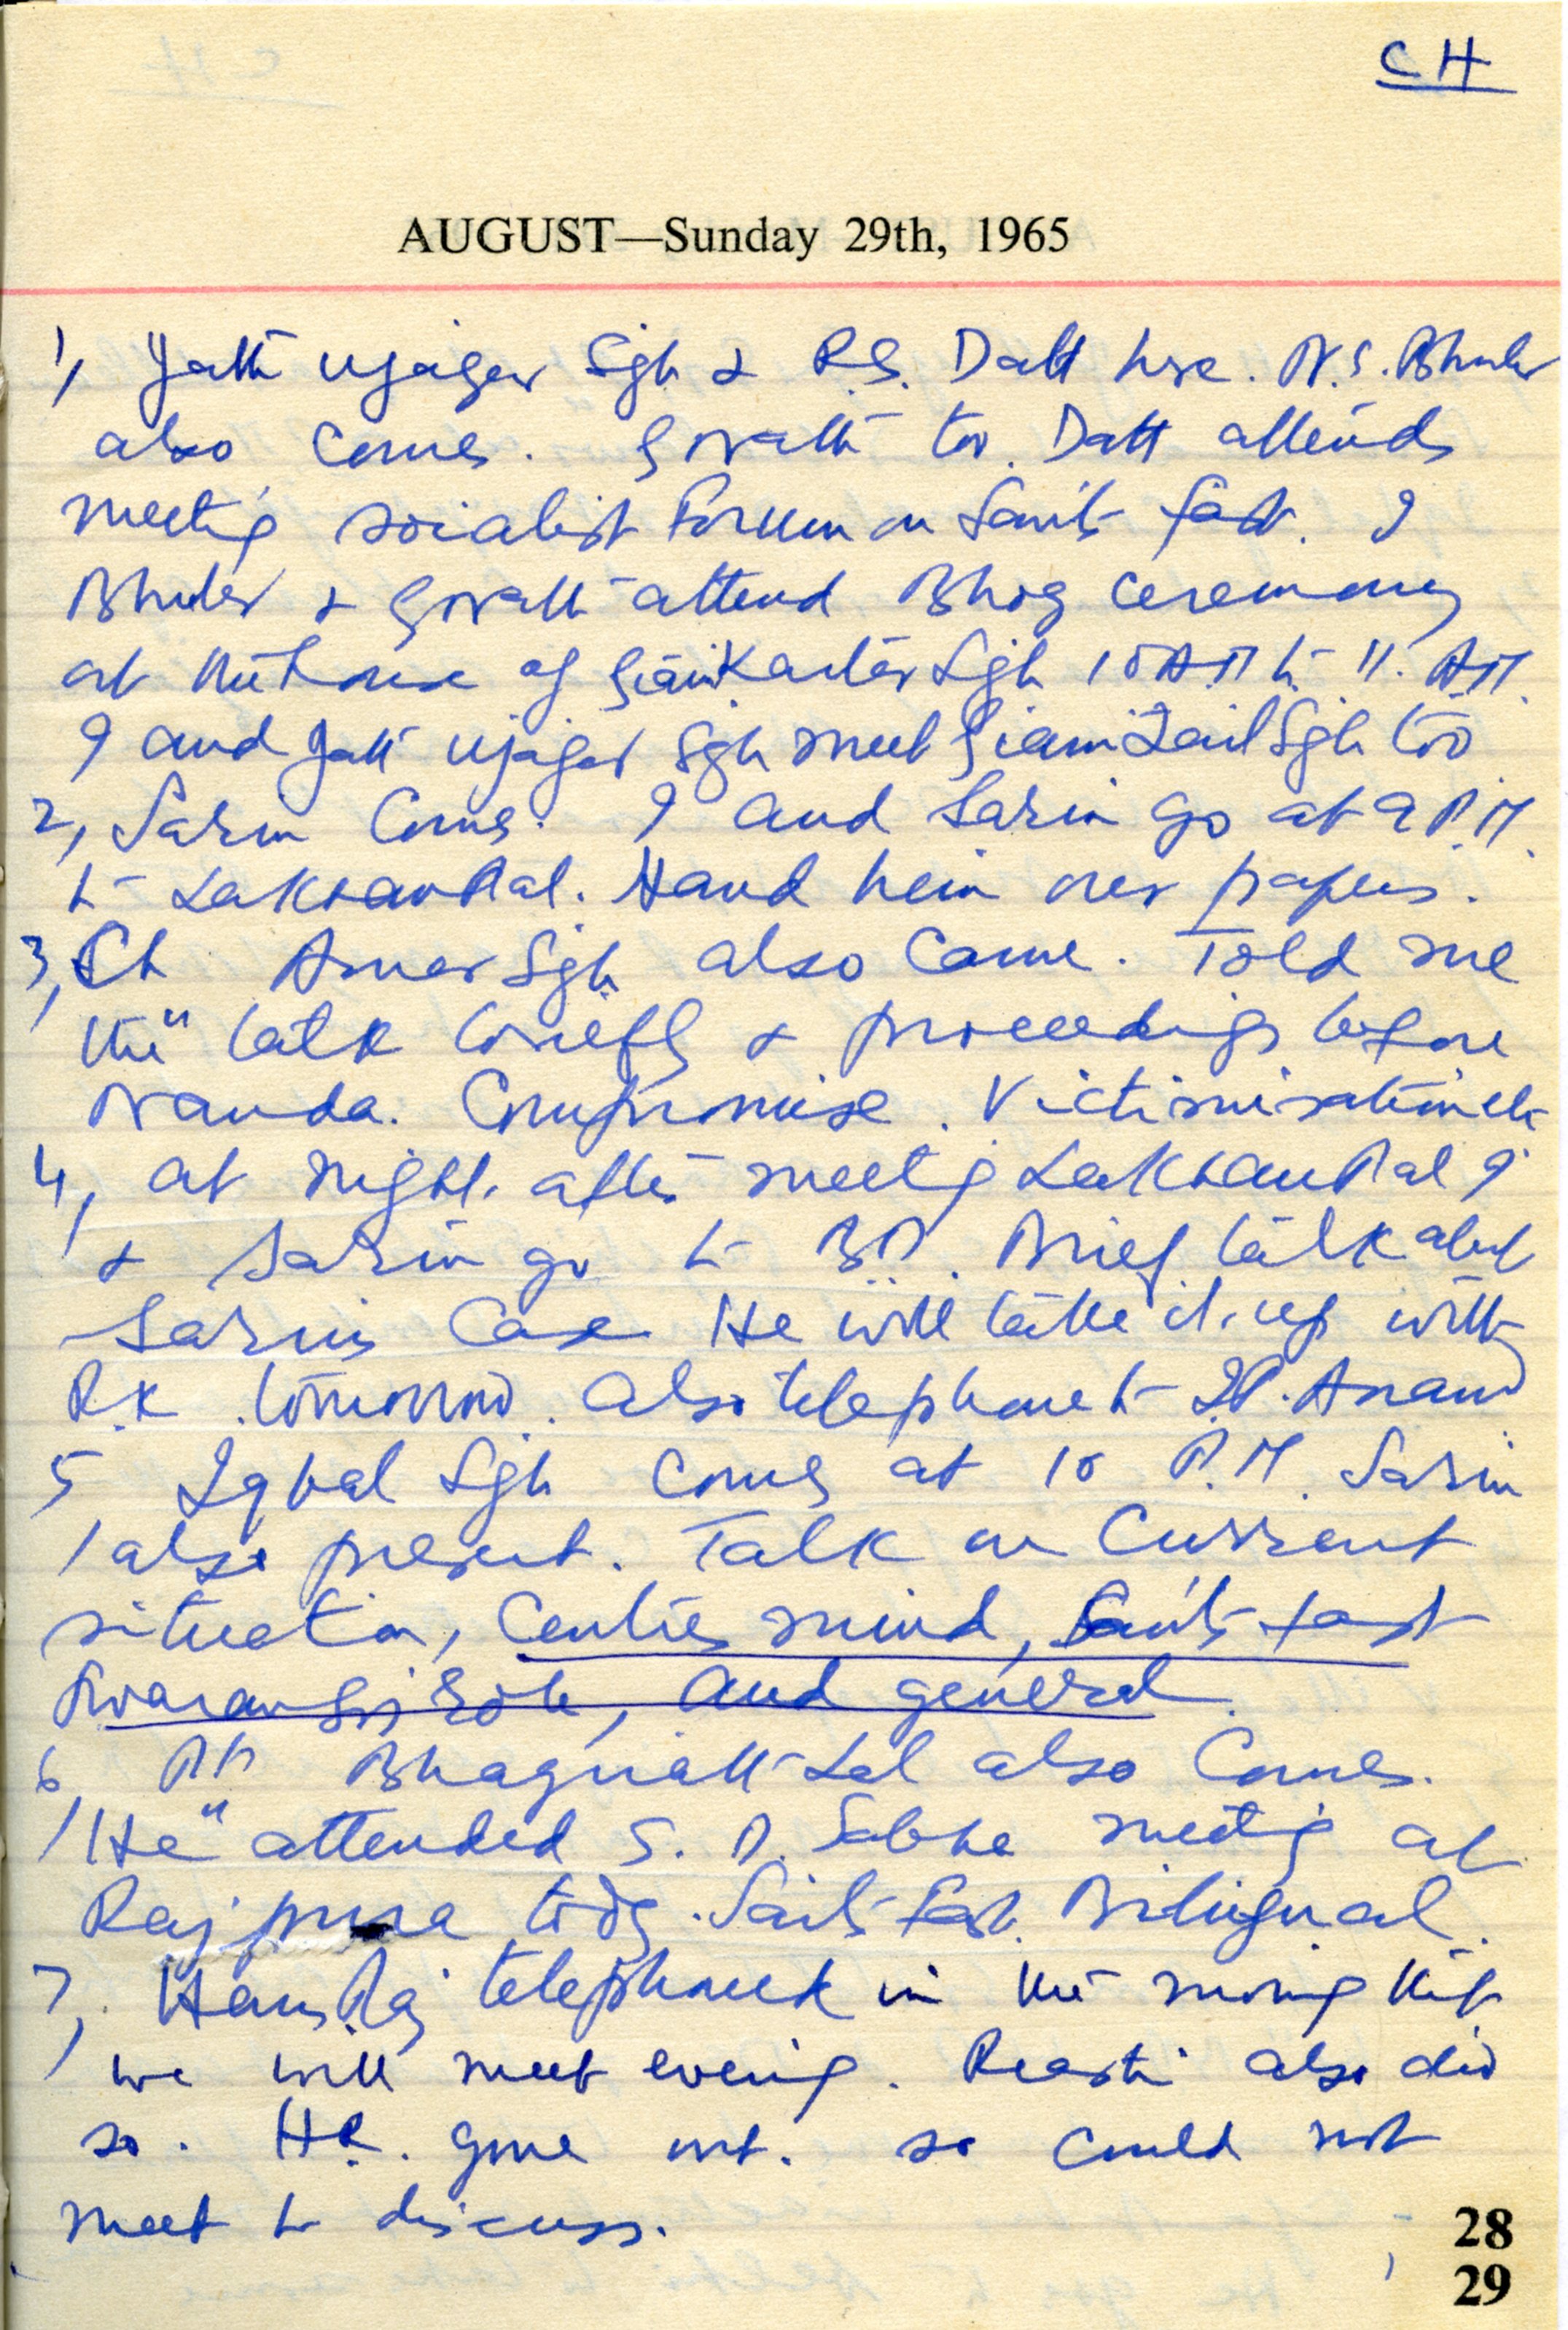 CH
AUGUST—Sunday 29th, 1965
1, Jath Ujagar Sgh & R.S. Datt here. N.S. Bhuler
also comes. Gorakh too. Datt attends
meeting socialist Forum on Sants fast. I
Bhuler & Gorakh attend Bhog ceremony
at the house of Giani Kartar Sgh 10 AM to 11. AM.
I and Jath Ujagar Sgh meet Giani Zail Sgh too
2, Sarin comes. I and Sarin go at 9 P.M.
to Lakhanpal. Hand him over papers.
3, Ch Amar Sgh also came. Told me
the talk briefly & proceedings before
Nanda. Compromise. Victimisation etc
4, at night. after meeting Lakhanpal I
& Sarin go to BD. Brief talk abut
Sarins case He will take it up with
R.K tomorrow. also telephone to Anand
5 Iqbal Sgh comes at 10 P.M. Sarin
also present. Talk on current
situation, Centres mind, Sants fast
Swaran role, and general
6, Bhagirath Lal also comes.
He attended S. D. Sabha meeting at
Rajpura today. Sants Fast. Bilingual.
7, Hans Raj telephoned in the morning that
we will meet evening. also did
so. HR. gone out. so could not
meet to discuss.
28
29